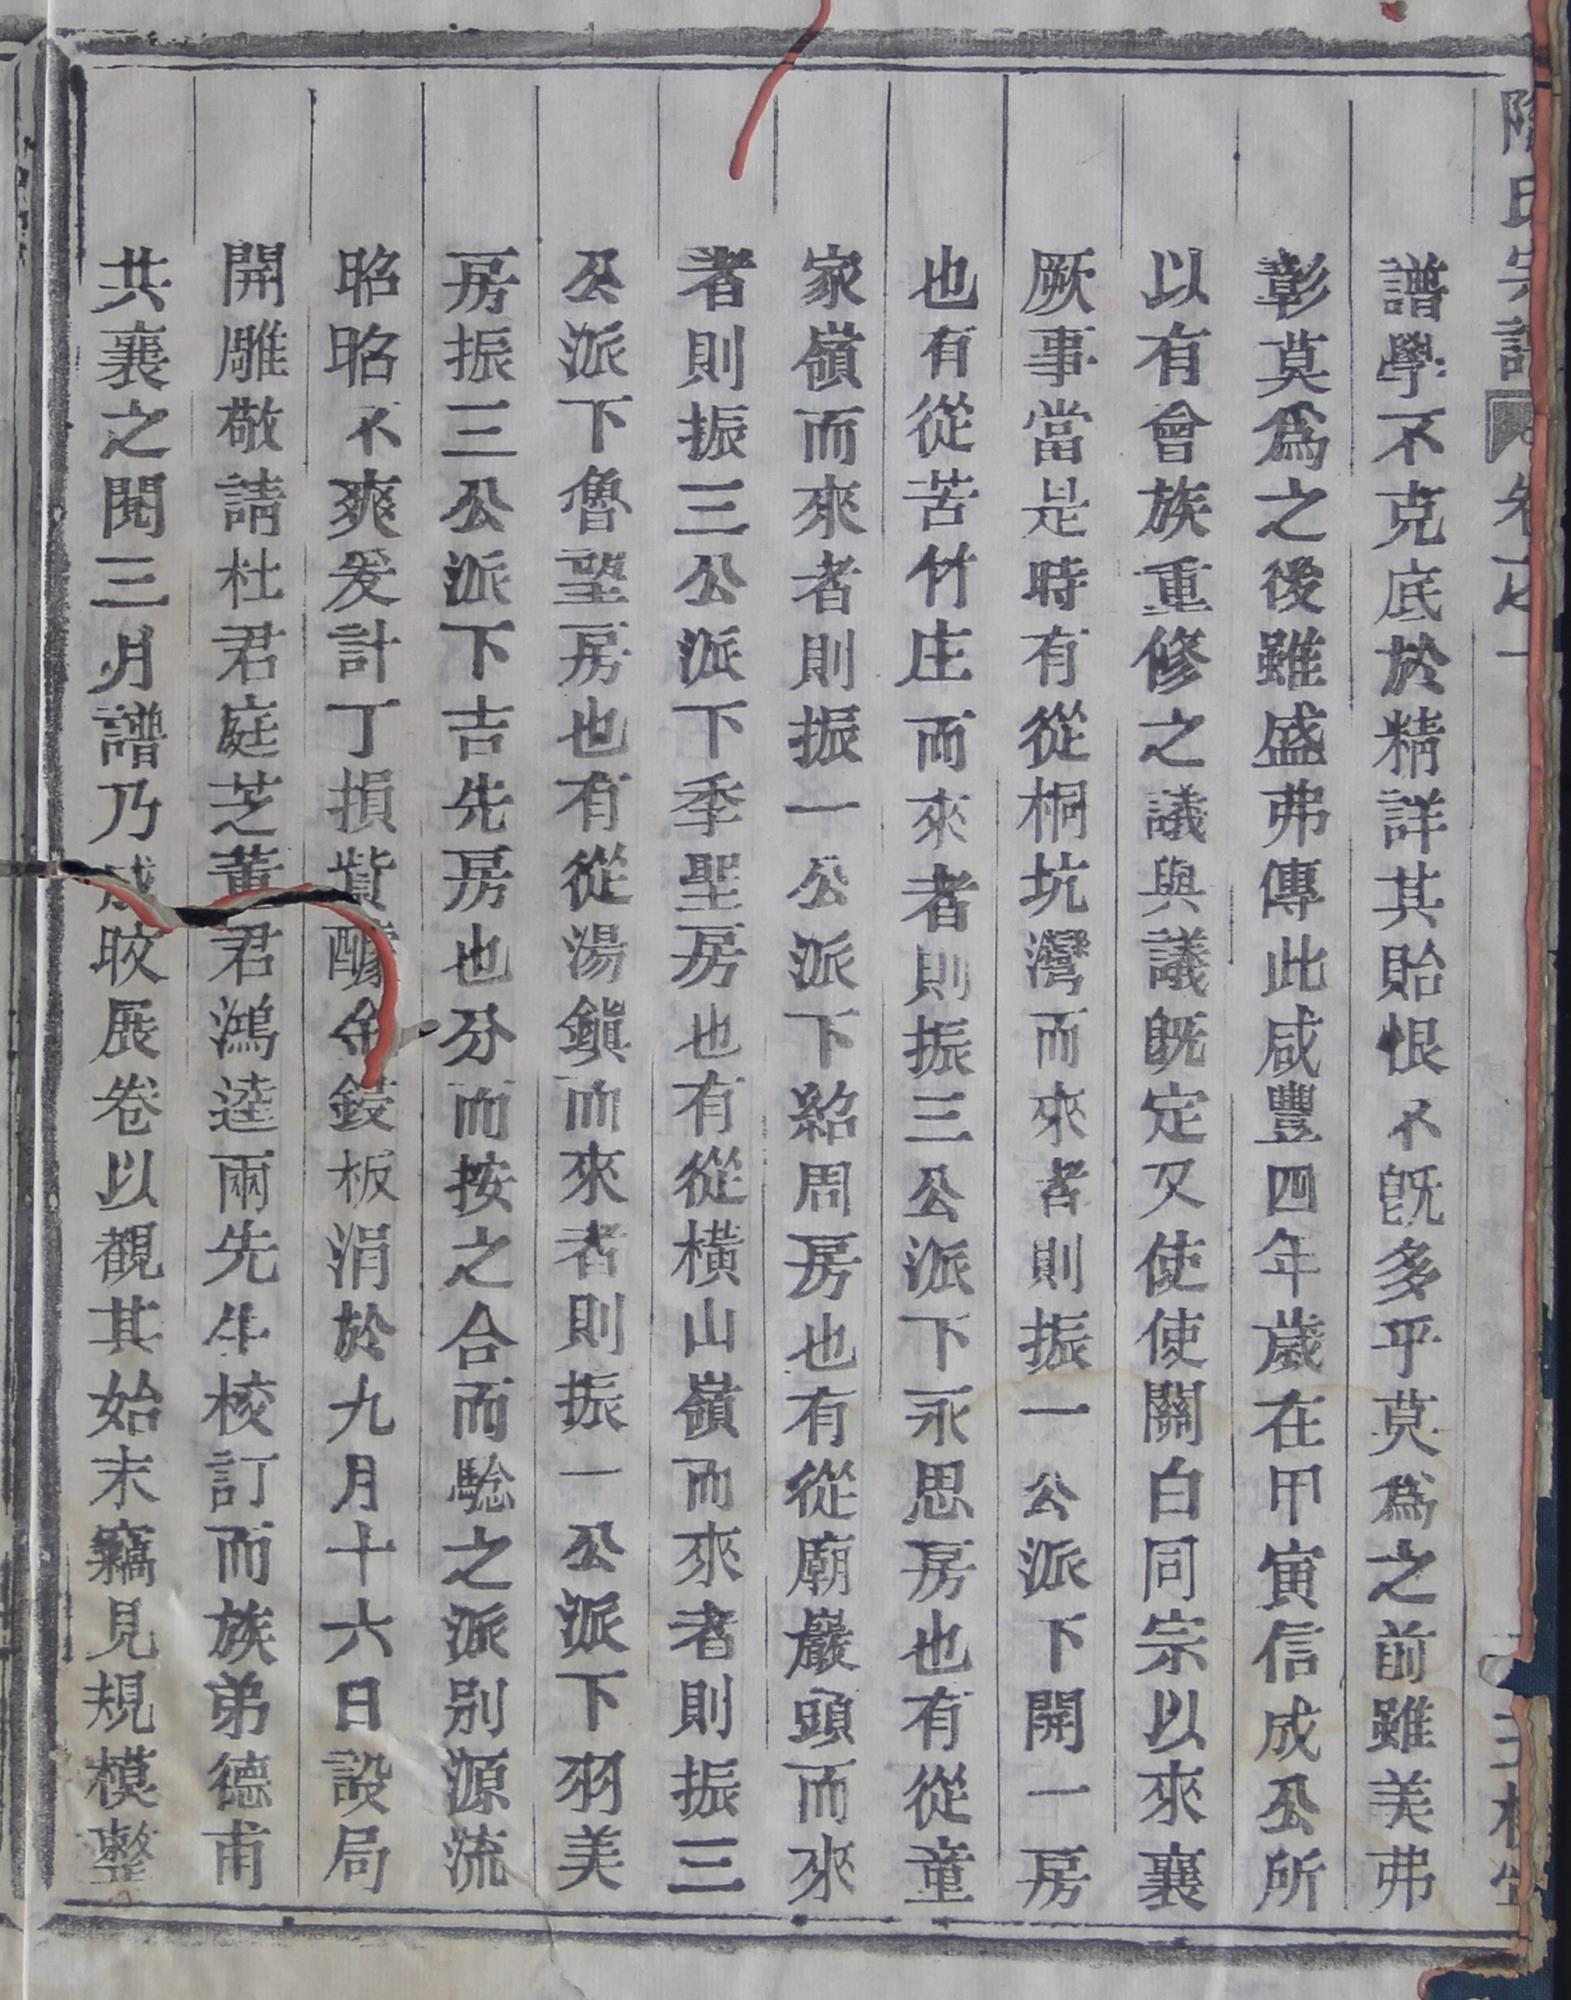 氏宗譜 卷之一
譜學不克底於精詳其貽恨不旣多乎莫爲之前雖美弗
彰莫爲之後雖盛弗傳此咸豐四年歲在甲寅信成公所
以有會族重修之議與議旣定又使使關白同宗以來襄
厥事當是時有從桐坑灣而來者則振一公派下開一房
也有從苦竹庄而來者則振三公派下永思房也有從童
家嶺而來者則振一公派下紹周房也有從廟巖頭而來
者則振三公派下季聖房也有從橫山嶺而來者則振三
公派下魯望房也有從湯鎭而來者則振一公派下羽美
房振三公派下吉先房也分而按之合而騐之派别源流
昭昭不爽爰計丁損貲醵金鋟板涓於九月十六日設局
開雕敬請杜君庭芝董君鴻逵兩先生校訂而族弟德甫
共襄之閱三月譜乃成晈展卷以觀其始末竊見規模整